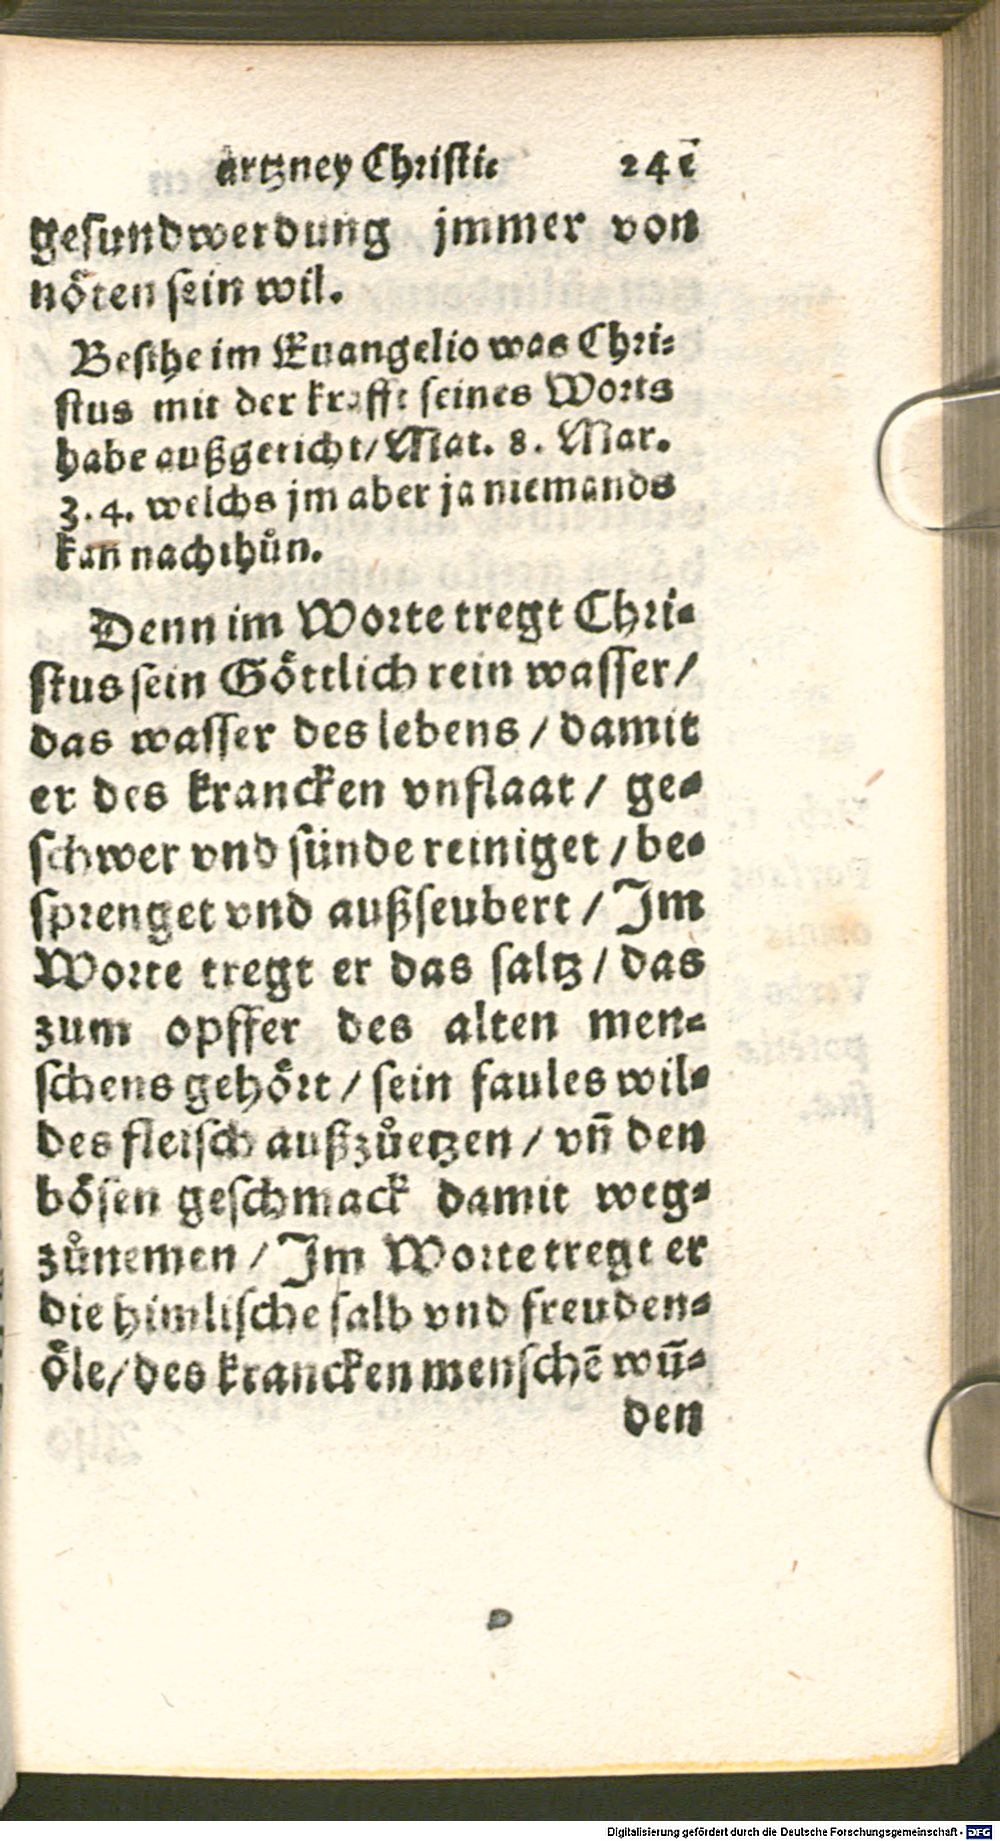 artzney Christi.
gesundwerdung jmmer von
nöten sein wil.
Besihe im Euangelio was Chri-
stus mit der krafft seines Worts
habe außgericht/ Mat. 8. Mar.
3. 4. welchs jm aber ja niemands
kan nachthůn.
Denn im Worte tregt Chri-
stus sein Göttlich rein wasser/
das wasser des lebens / damit
er des krancken vnflaat / ge-
schwer vnd sünde reiniget / be-
sprenget vnd außseubert / Im
Worte tregt er das saltz / das
zum opffer des alten men-
schens gehört / sein faules wil-
des fleisch außzůetzen / vñ den
bösen geschmack damit weg-
zůnemen / Im Worte tregt er
die himlische salb vnd freuden-
öle/ des krancken menschē wū-
den
Digitalisierung gefördert durch die Deutsche Forschungsgemeinschaft - DFG